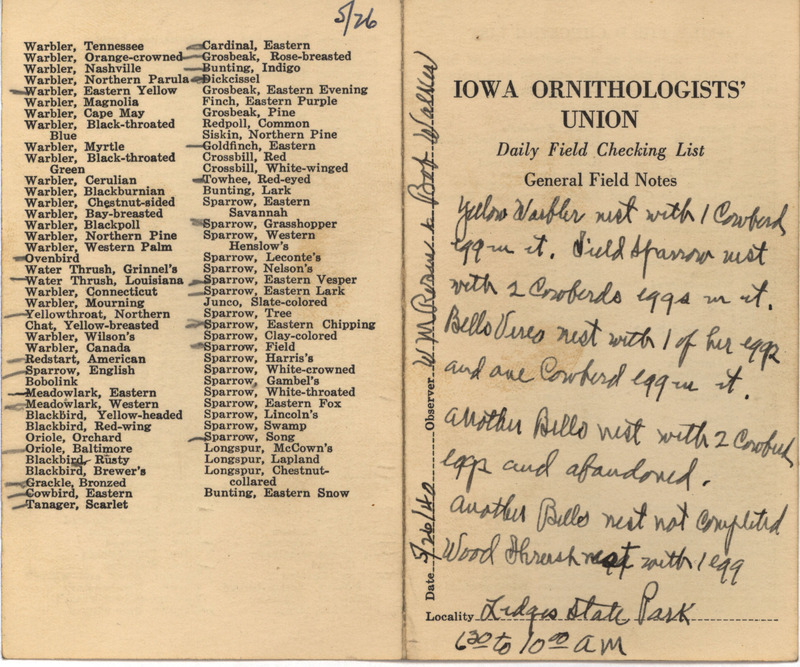 5/26
Warbler, Tennessee
Warbler, Orange-crowned
Warbler, Nashville
Warbler, Northern Parula
Warbler, Eastern Yellow
Warbler, Magnolia
Warbler, Cape May
Warbler, Black-throated
Blue
Warbler, Myrtle
Warbler, Black-throated
Green
Warbler, Cerulian
Warbler, Blackburnian
Warbler, Chestnut-sided
Warbler, Bay-breasted
Warbler, Blackpoll
Warbler, Northern Pine
Warbler, Western Palm
Ovenbird
Water Thrush, Grinnel's
Water Thrush, Louisiana
Warbler, Connecticut
Warbler, Mourning
Yellowthroat, Northern
Chat, Yellow-breasted
Warbler, Wilson's
Warbler, Canada
Redstart, American
Sparrow, English
Bobolink
Meadowlark, Eastern
Meadowlark, Western
Blackbird, Yellow-headed
Blackbird, Red-wing
Oriole, Orchard
Oriole, Baltimore
Blackbird, Rusty
Blackbird, Brewer's
Grackle, Bronzed
Cowbird, Eastern
Tanager, Scarlet
Cardinal, Eastern
Grosbeak, Rose-breasted
Bunting, Indigo
Dickcissel
Grosbeak, Eastern Evening
Finch, Eastern Purple
Grosbeak, Pine
Redpoll, Common
Siskin, Northern Pine
Goldfinch, Eastern
Crossbill, Red
Crossbill, White-winged
Towhee, Red-eyed
Bunting, Lark
Sparrow, Eastern
Savannah
Sparrow, Grasshopper
Sparrow, Western
Henslow's
Sparrow, Leconte's
Sparrow, Nelson's
Sparrow, Eastern Vesper
Sparrow, Eastern Lark
Junco, Slate-colored
Sparrow, Tree
Sparrow, Eastern Chipping
Sparrow, Clay-colored
Sparrow, Field
Sparrow, Harris's
Sparrow, White-crowned
Sparrow, Gambel's
Sparrow, White-throated
Sparrow, Eastern Fox
Sparrow, Lincoln's
Sparrow, Swamp
Sparrow, Song
Longspur, McCown's
Longspur, Lapland
Longspur, Chestnut-
collared
Bunting, Eastern Snow
Date 5/26/40 Observer W M Rosene & Bob Walker
IOWA ORNITHOLOGISTS'
UNION
Daily Field Checking List
General Field Notes
Yellow Warbler nest with 1 Cowberd
egg in it. Field Sparrow nest
with 2 Cowberds eggs in it.
Bells Vireo nest with 1 of her eggs
and one Cowberd egg in it.
Another Bells nest with 2 Cowberd
eggs and abandoned.
Another Bells nest not completed
Wood Thrush nest with 1 egg
Locality Ledges State Park
6 30 to 10 00 AM